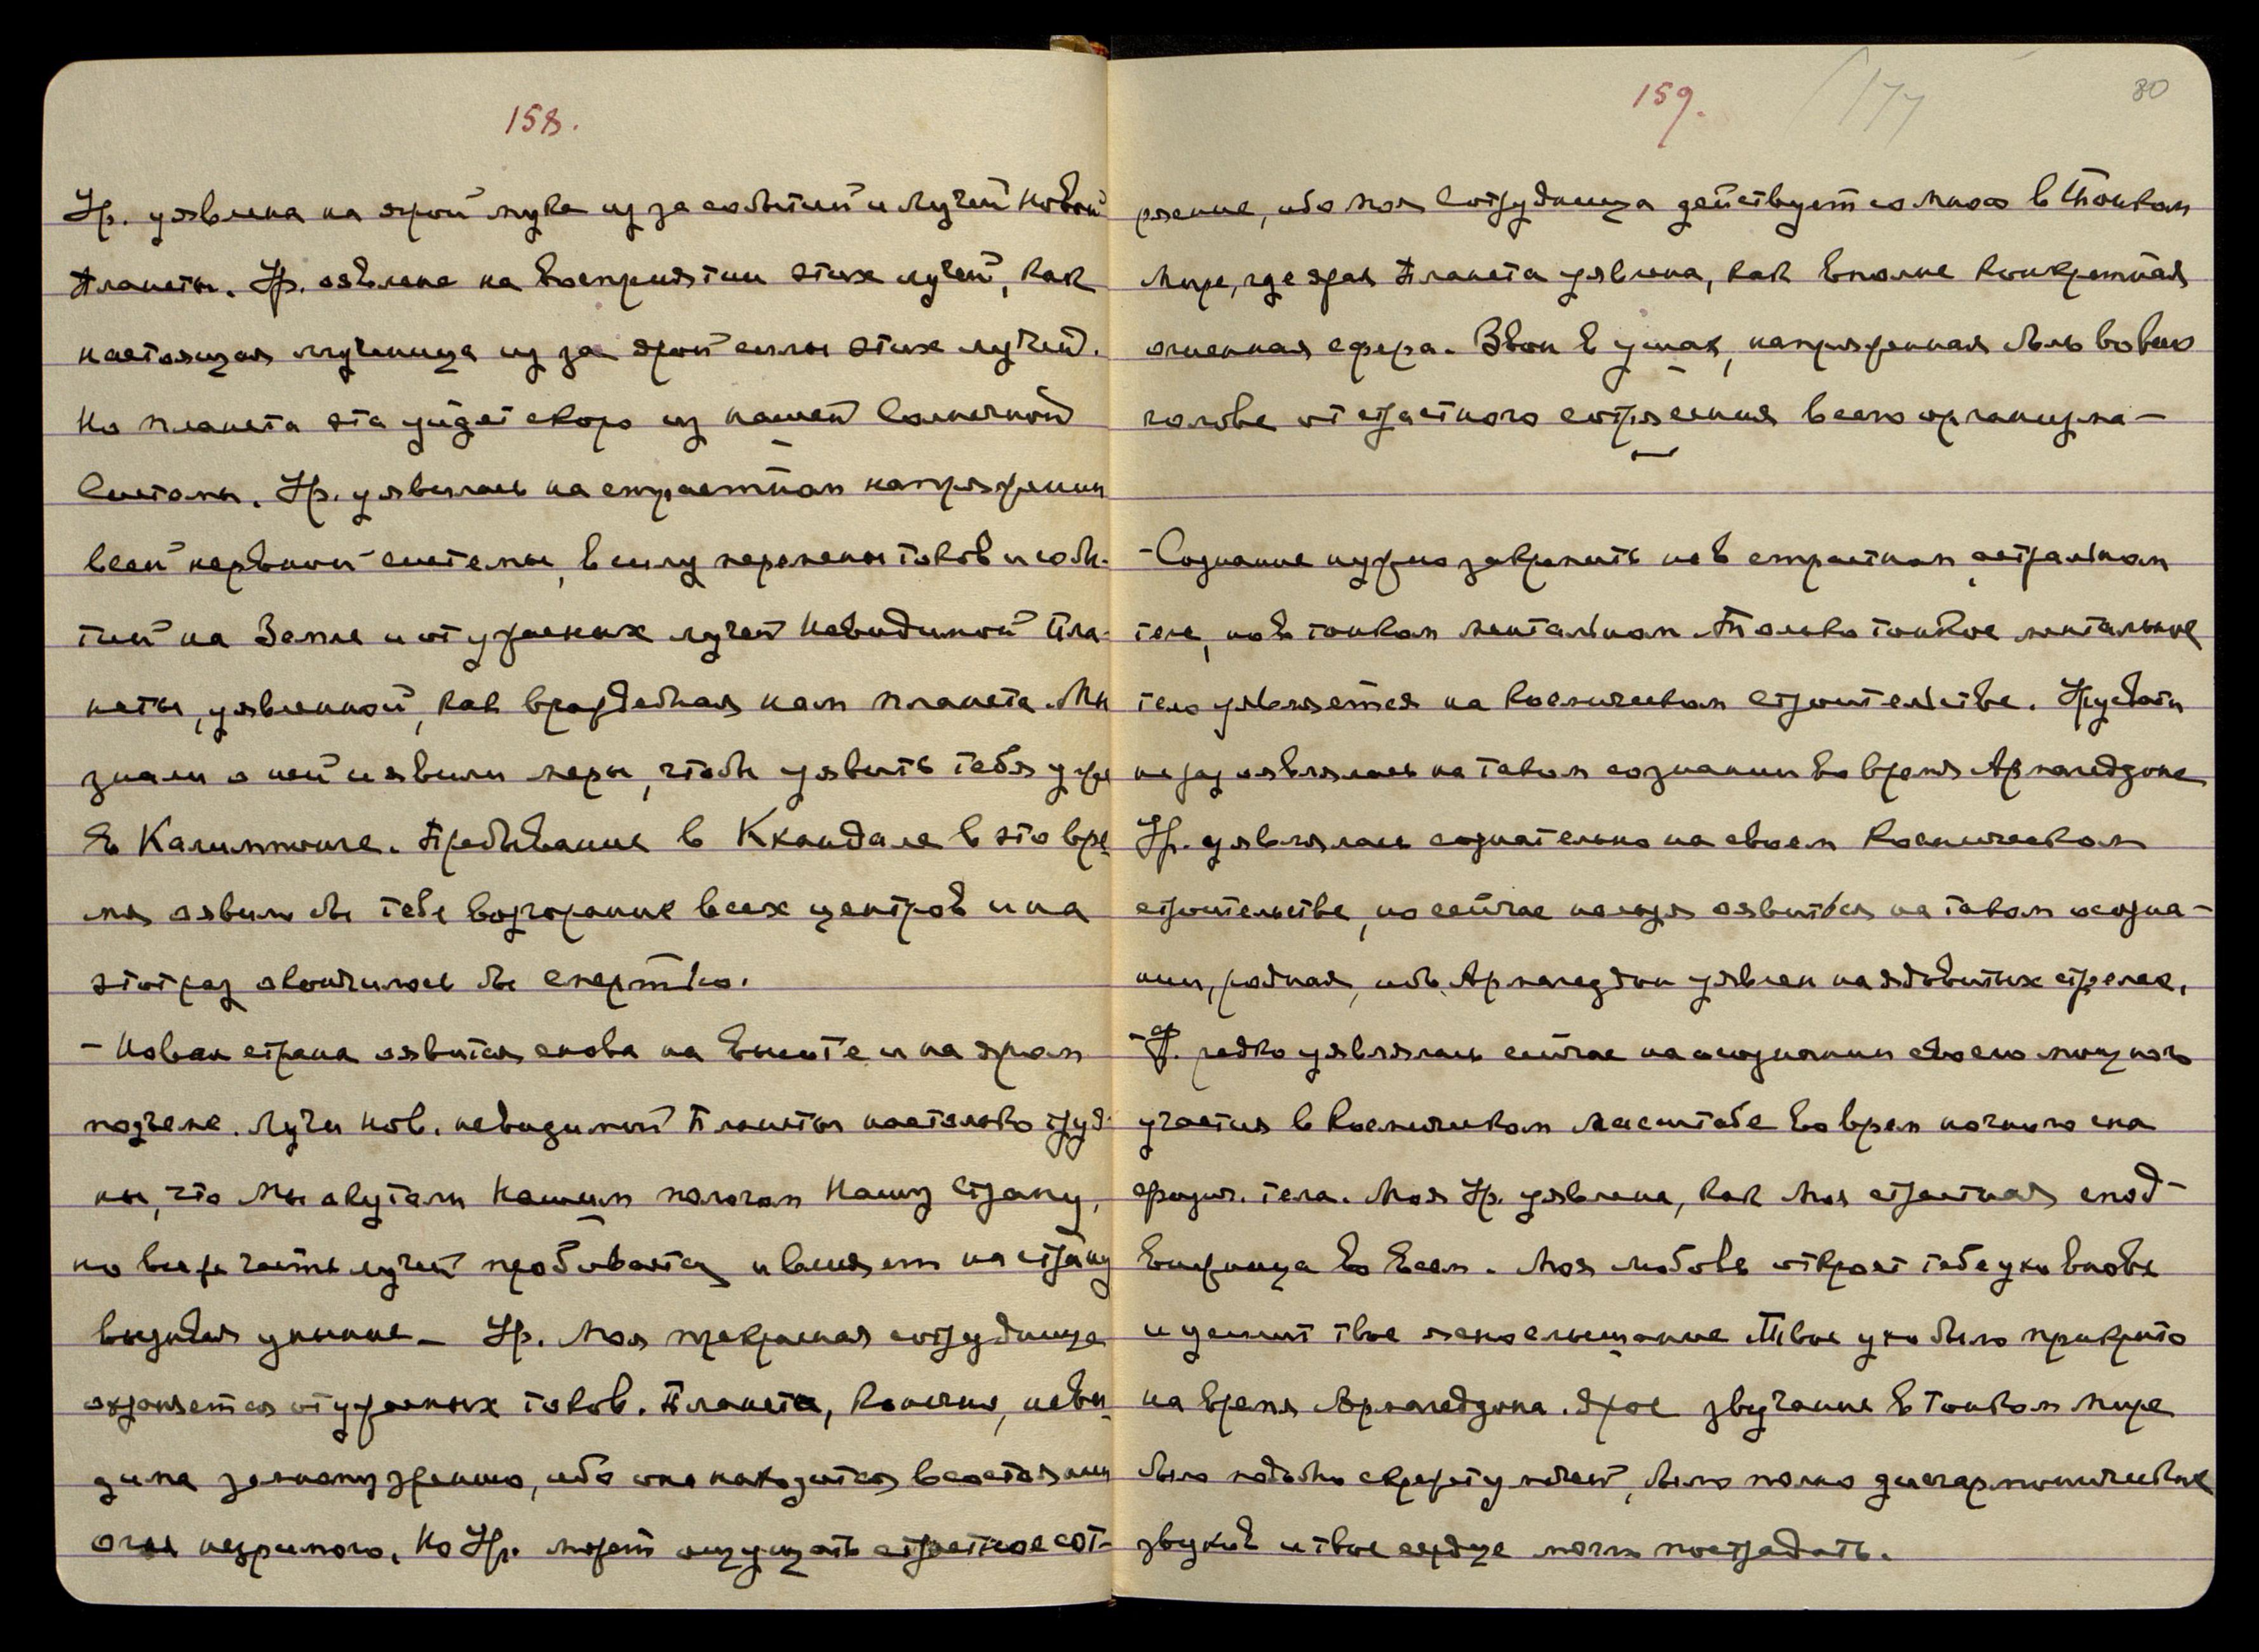 158.
Ур. уявлена на ярой муке из за событий и лучей новой
планеты. Ур. оявлена на восприятии этих лучей, как
настоящая мученица из за ярой силы этих лучей.
Но планета эта уйдет скоро из нашей Солнечной
Системы. Ур. уявилась на страстном напряжении
всей нервной системы, в силу перемены токов и собы-
тий на Земле и от ужасных лучей Невидимой Пла-
неты, уявленной, как враждебная нам планета. Мы
знали о ней и явили меры, чтобы уявить тебя уже
в Калимпонге. Пребывание в Ккандала в это вре-
мя оявило бы тебе возгорание всех центров и на
этот раз окончилось бы смертью.
- Новая страна оявится снова на высоте и на яром
подъеме. Лучи нов. невидимой Планеты настолько труд-
ны, что Мы окутали Нашим пологом Нашу Страну,
но все же часть лучей пробивается и влияет на страну
вызывая уныние - Ур. Моя прекрасная сотрудница
охраняется от ужасных токов. Планета, конечно, неви-
дима земному зрению, ибо она находится в состоянии
огня незримого. Но Ур. может ощущать страстное сот-
159. 177 80
рясение, ибо моя Сотрудница действует со мною в Тонком
Мире, где ярая Планета уявлена, как вполне конкретная
огненная сфера. Звон в ушах, напряженная боль во всей
голове от страстного сотрясения всего организма -
- Сознание нужно закрепить не в страстном астральном
теле, но в тонком ментальном. Только тонкое ментальное
тело уявляется на космическом строительстве. Урусвати
не раз оявлялась на таком сознании во время Армагеддона
Ур. уявлялась сознательно на своем космическом
строительстве, но сейчас нельзя оявиться на таком осозна-
нии, родная, ибо Армагеддон уявлен на ядовитых стрелах.
- Ур. редко уявлялась сейчас на осознании своего мощного
участия в космическом масштабе во врем ночного сна
физич. тела. Моя Ур. уявлена, как Моя страстная спод-
вижница во всем. Моя любовь откроет тебе ухо вновь
и усилит твое яснослышание Твое ухо было прикрыто
на время Армагеддона. Ярое звучание в Тонком Мире
было подобно скрежету цепей, было полно дисгармонических
звуков и твое сердце могло пострадать.